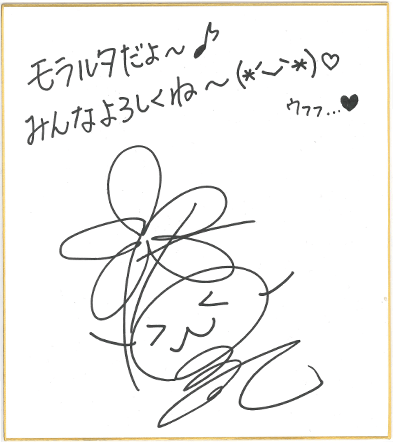 モラルタだよ〜♪
みんなよろしくね〜(*´⌣`*)♡
ウフフ…♥